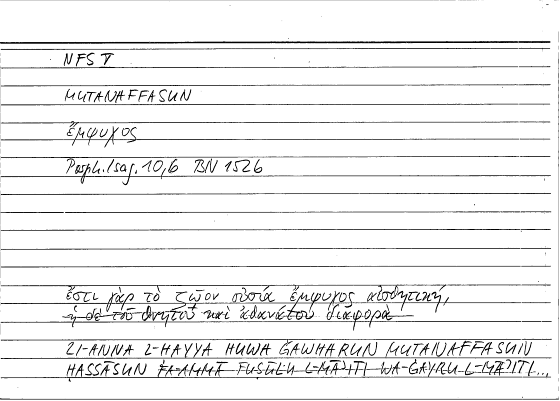 NFS V
MUTANAFFASUN
ἔμψυχος
Porph. Isag. 10,6 BN 152b
ἔστι γὰρ τὸ ζῷον οὐσία ἔμψυχος αἰσθητική,
ἡ δὲ τοῦ θνητοῦ καὶ ἀθανάτου διαφορὰ
LI-ANNA L-HAYYA HUWA ǦAWHARUN MUTANAFFASUN
HASSĀSUN FA-AMMĀ FUṢŪLU L-MĀʾITI WA-ĠAYRU L-MĀʾITI...